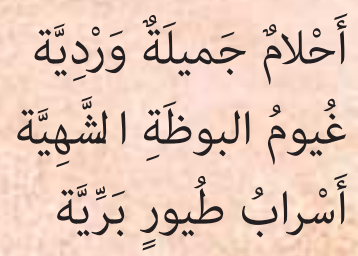 أَحْلامٌ جَميلَةٌ وَرْدِيَّة
غُيومُ البوظَةِ الشَّهِيَّة
أَسْرابُ طُيورٍ بَرِّيَّة